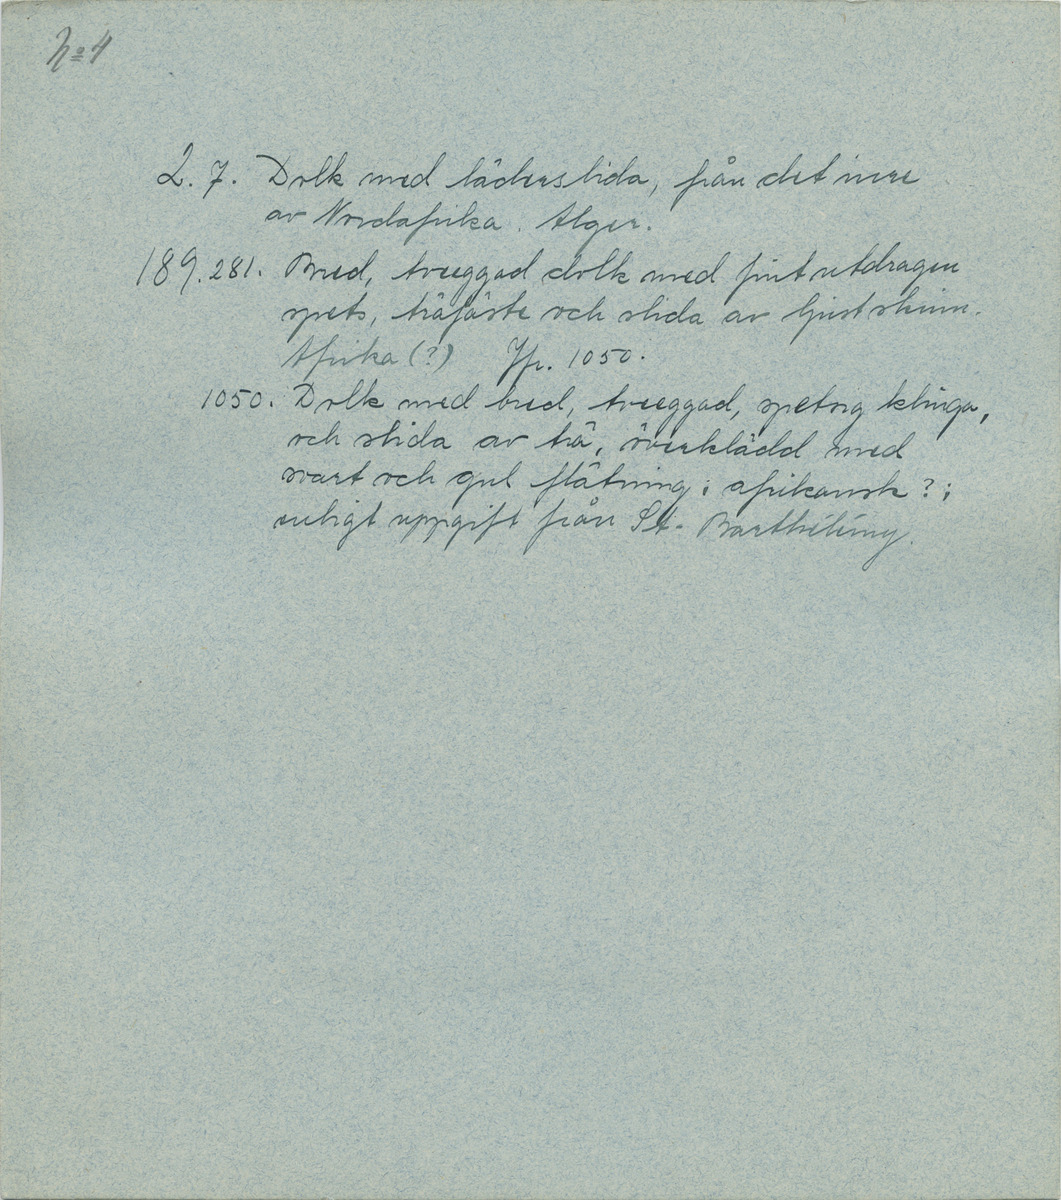 No 4
2. 7. Dolk med läderslida, från det inre
av Nordafrika. Alger.
189. 281. Bred, tveeggad dolk med fint utdragen
spets, träfäste och slida av ljust skinn.
Afrika (?) Jfr. 1050.
1050. Dolk med bred, tveeggad, spetsig klinga,
och slida av trä, överklädd med
svart och gul flätning; afrikansk?;
enligt uppgift från St. Barthélémy.